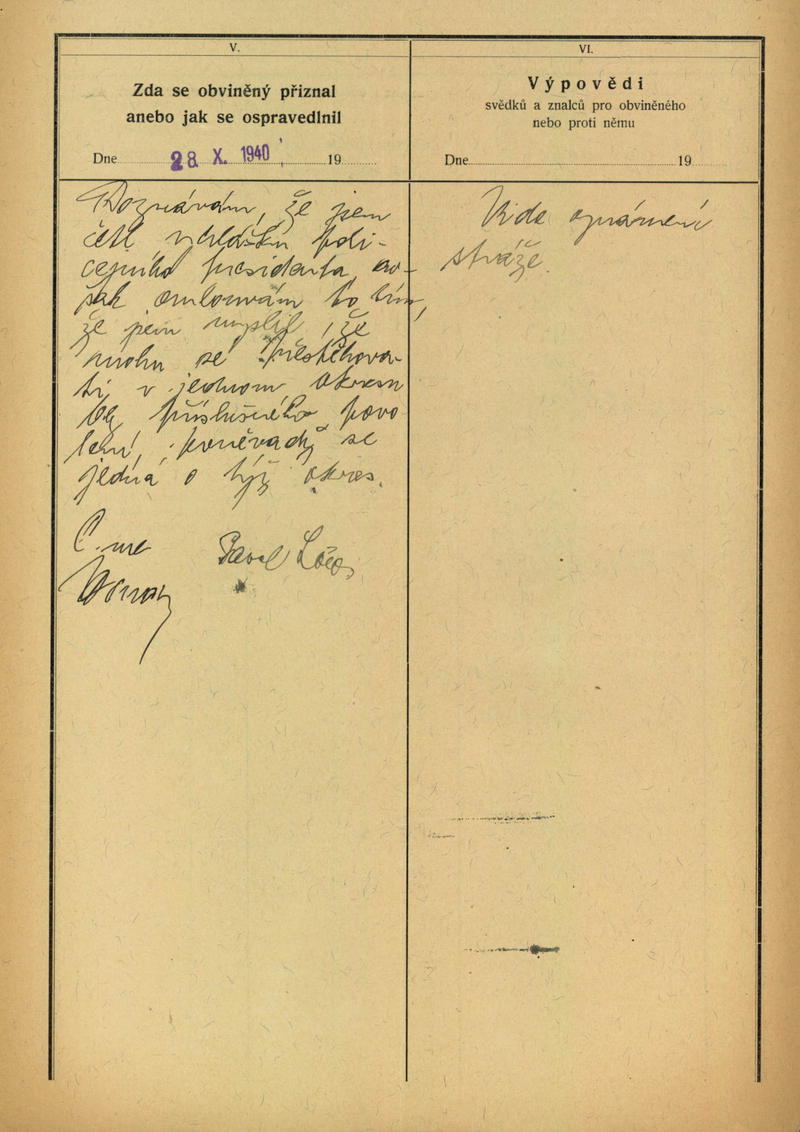 V.
Zda se obviněný přiznal
anebo jak se ospravedlnil
Dne 28. X. 1940 19
Doznávám, že jsem
četl vyhlášku poli-
cejního presidenta, av-
šak omlouvám to tím,
že jsem myslil, že
mohu se přestěhova-
ti v jednom okresu
bez příslušného povo
lení, poněvadž se
jedná o týž okres.
Pavel
VI.
Výpovědi
svědků a znalců pro obviněného
nebo proti němu
Dne 19
Vide oznámení
stráže.